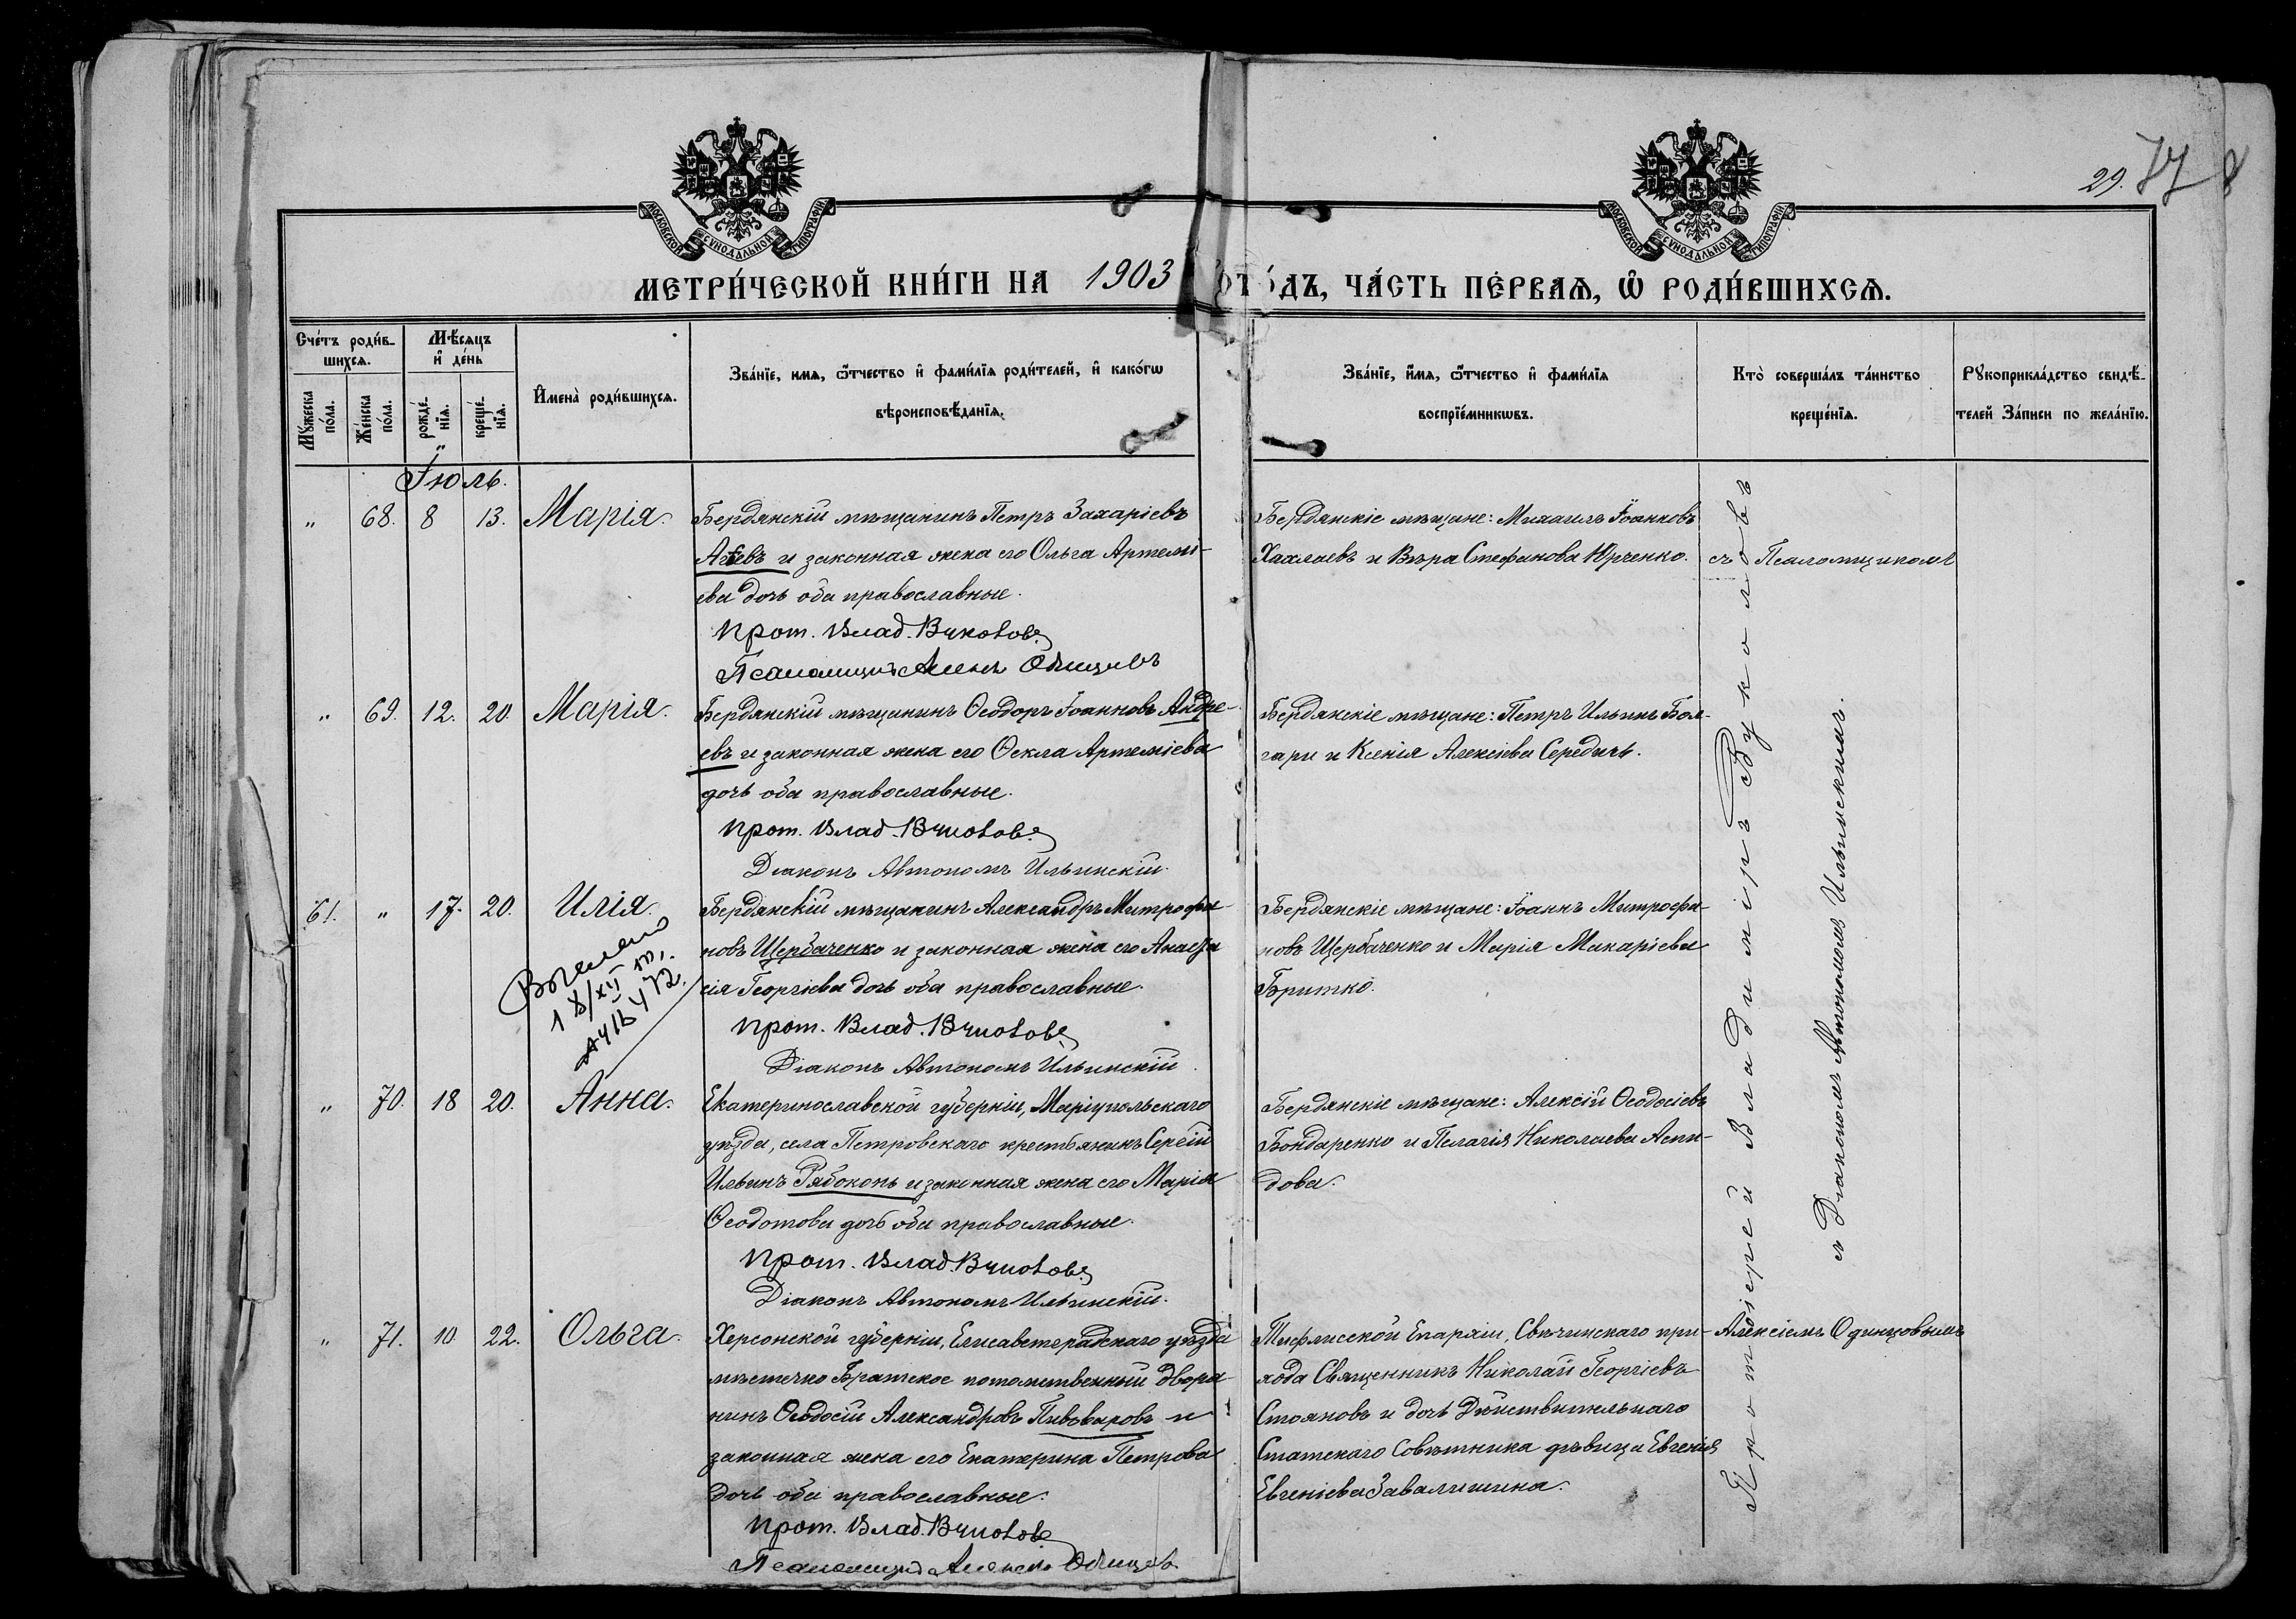 29. 77
МОСКОВСКОЙ СѴНОДАЛЬНОЙ ТИПОГРАФІИ
МОСКОВСКОЙ СѴНОДАЛЬНОЙ ТИПОГРАФІИ
МЕТРИ́ЧЕСКОЙ КНИ́ГИ НА 1903 ГО́ДЪ, ЧА́СТЬ ПЕ́РВАѦ, Ѡ҆ РОДИ́ВШИХСѦ.
Сче́тъ роди́в-
шихсѧ.
Мѣ́сѧцъ
и҆ де́нь
Мꙋ́жеска
по́ла.
Же́нска
по́ла.
рожде́-
нїѧ.
креще́-
нїѧ.
И҆мена̀ роди́вшихсѧ.
Зва́нїе, имѧ, ѻ҆́тчество и҆ фами́лїѧ роди́телей, и҆ како́гѡ
вѣроисповѣ́данїѧ.
Зва́нїе, и҆́мѧ, ѻ҆́тчество и҆ фами́лїѧ
воспрїе́мникѡвъ.
Кто̀ соверша́лъ та́инство
креще́нїѧ.
Рꙋкоприкла́дство свидѣ́-
телей За́писи по жела́нїю.
Іюль.
„ 68. 8 13. Марія.
Бердянскій мѣщанинъ Петръ Захаріевъ
Агѣевъ и законная жена его Ольга Артемі-
ева дочь оба православные.
Прот. Влад. Вуколовъ
Псаломщикъ Алексѣй Одинцовъ
Бердянскіе мѣщане: Михаилъ Іоанновъ
Хахлаевъ и Вѣра Стефанова Юрченко.
съ Псаломщикомъ
„ 69. 12. 20. Марія.
Бердянскій мѣщанинъ Ѳеодоръ Іоанновъ Андре-
евъ и законная жена его Ѳекла Артеміева
дочь оба православные.
Прот. Влад. Вуколовъ
Діаконъ Автономъ Ильинскій.
Бердянскіе мѣщане: Петръ Ильинъ Бол-
гари и Ксенія Алексіева Середичъ.
61. „ 17. 20. Илія.
18/XII
Бердянскій мѣщанинъ Александръ Митрофа-
новъ Щербаченко и законная жена его Анаста-
сія Георгіева дочь оба православные.
Прот. Влад. Вуколовъ
Діаконъ Автономъ Ильинскій
Бердянскіе мѣщане: Іоаннъ Митрофа-
новъ Щербаченко и Марія Макаріева
Бритко.
„ 70. 18 20. Анна.
Екатеринославской губерніи, Маріупольскаго
уѣзда, села Петровскаго крестьянинъ Сергій
Ильинъ Рябоконь и законная жена его Марія
Ѳеодотова дочь оба православные.
Прот. Влад. Вуколовъ
Діаконъ Автономъ Ильинскій.
Бердянскіе мѣщане: Алексій Ѳеодосіевъ
Бондаренко и Пелагія Николаева Аспи-
дова.
„ 71. 10 22. Ольга.
Херсонской губерніи, Елисаветградскаго уѣзда
мѣстечко Братское потомственный дворя-
нинъ Ѳеодосій Александровъ Пивоваровъ и
законная жена его Екатерина Петрова
дочь оба православные.
Прот. Влад. Вуколовъ
Псаломщикъ Алексѣй Одинцовъ
Тифлисской Епархіи, Свѣчинскаго при-
хода Священникъ Николай Георгіевъ
Стояновъ и дочь Дѣйствительнаго
Статскаго Совѣтника дѣвица Евгенія
Евгеніева Завалишина.
Алексіемъ Одинцовымъ
Протоіерей Владиміръ Вуколовъ
съ Діакономъ Автономомъ Ильинскимъ.